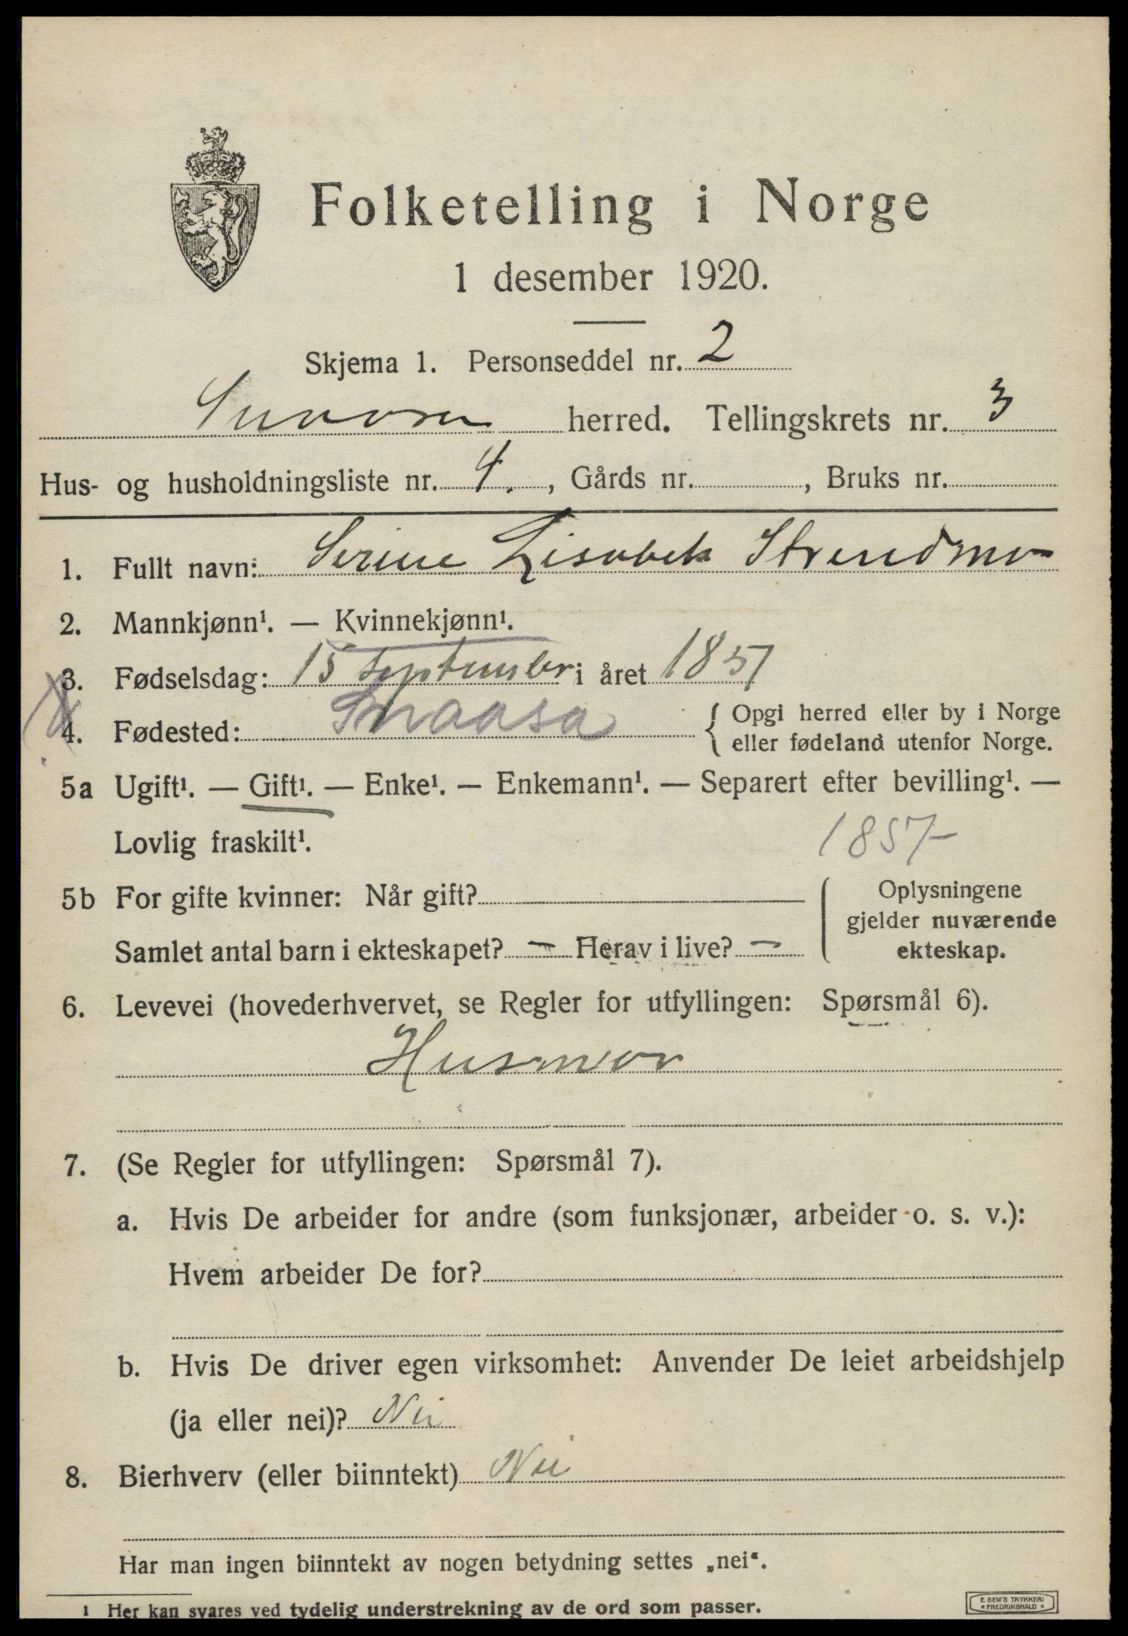 Folketelling i Norge
1 desember 1920.
Skjema 1. Personseddel nr. 2
herred. Tellingskrets nr. 3
Hus- og husholdningsliste nr. 4. , Gårds nr. , Bruks nr.
1. Fullt navn: Serine Lisabek Strendmo
2. Mannkjønn¹. — Kvinnekjønn¹.
3. Fødselsdag: 15 september i året 1857
4. Fødested: Snaasa { Opgi herred eller by i Norge
eller fødeland utenfor Norge.
5a Ugift¹. — Gift¹. — Enke¹. — Enkemann¹. — Separert efter bevilling¹. —
Lovlig fraskilt¹.
1857-
5b For gifte kvinner: Når gift? { Oplysningene
gjelder nuværende
Samlet antal barn i ekteskapet? — Herav i live? — ekteskap.
6. Levevei (hovederhvervet, se Regler for utfyllingen: Spørsmål 6).
Husmor
7. (Se Regler for utfyllingen: Spørsmål 7).
a. Hvis De arbeider for andre (som funksjonær, arbeider o. s. v.):
Hvem arbeider De for?
b. Hvis De driver egen virksomhet: Anvender De leiet arbeidshjelp
(ja eller nei)? Nei
8. Bierhverv (eller biinntekt) Nei
Har man ingen biinntekt av nogen betydning settes „nei“.
1 Her kan svares ved tydelig understrekning av de ord som passer.
E. SEM'S TRYKKERI
* FREDRIKSHALD *